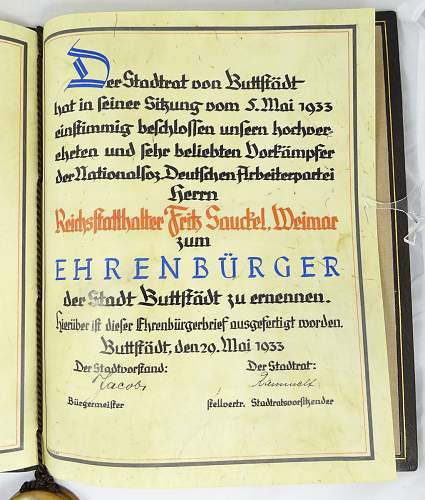 Der Stadtrat von Buttstädt
hat in seiner Sitzung vom 5. Mai 1933
einstimmig beschlossen unsern hochver-
ehrten und sehr beliebten Vorkämpfer
der Nationalsoz. Deutschen Arbeiterpartei
Herrn
Reichsstatthalter Fritz Sauckel, Weimar
zum
EHRENBÜRGER
der Stadt Buttstädt zu ernennen.
Hierüber ist dieser Ehrenbürgerbrief ausgefertigt worden.
Buttstädt, den 29. Mai 1933
Der Stadtvorstand: Der Stadtrat:
Jacobs
Bürgermeister stellvertr. Stadtratsvorsitzender